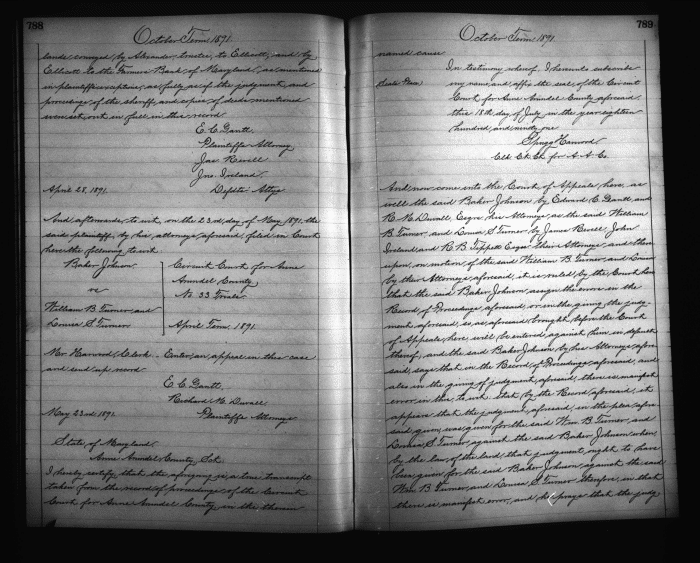 788
October Term 1891.
lands conveyed by Alexander trustee to Ellicott, and by
Ellicott to the Farmers Bank of Maryland, as mentioned
in plaintiffs exceptions, as fully as if the judgment, and
proceedings of the sheriff, and copies of deeds mentioned
were set out in full in this record.
E. C. Gantt
Plaintiffs Attorney
Jas Revell
Jno. Ireland
Defdts Attys
April 28, 1891.
And afterwards, to wit, on the 23rd day of May 1891, the
said plaintiff, by his attorneys aforesaid, filed in Court
here the following, to wit
Baker Johnson
vs
William B. Turner and
Louisa S. Turner
Circuit Court for Anne
Arundel County
No 33 Trials
April Term 1891
Mr Harwood, Clerk. Enter an appeal in this case
and send up record
E. C. Gantt
Richard M. Duvall
Plaintiffs Attorneys
May 23rd 1891.
State of Maryland
Anne Arundel County, Sct.
I hereby certify that the aforegoing is a true transcript
taken from the record of proceedings of the Circuit
Court for Anne Arundel County, in the therein
789
October Term 1891
named cause
In testimony whereof I hereunto subscribe
my name, and affix the seal of the Circuit
Court for Anne Arundel County aforesaid
this 18th day of July in the year eighteen
hundred and ninety one
Sprigg Harwood
Clk Ct. Ct. for A. A. Co
And now come into the Court of Appeals, here, as
well the said Baker Johnson by Edward C. Gantt and
R. M. Duvall, Esqrs, his Attorneys as the said William
B. Turner, and Louisa S. Turner by James Revell, John
Ireland, and R. B. Tippett Esqrs their Attorneys and there
upon, on motion of the said William B. Turner and Louisa
by their Attorneys aforesaid, it is ruled by the Court here
that the said Baker Johnson assign the errors in the
Record of Proceedings aforesaid, or in the giving the judg-
ment aforesaid, so, as aforesaid brought before the Court
of Appeals, here, will be entered against him, on default
thereof, and the said Baker Johnson by his Attorneys afore
said, says that in the Record of Proceedings aforesaid, and
also in the giving of judgment, aforesaid, there is manifest
error, in this, to wit. That by the Record aforesaid, it
appears that the judgment, aforesaid, in the plea afore
said given, was given for the said Wm B. Turner, and
Louisa S. Turner against the said Baker Johnson when
by the law of the land that judgment, ought to have
been given for the said Baker Johnson against the said
Wm B. Turner and Louisa S. Turner. Therefore, in that
there is manifest error, and he prays that the judg